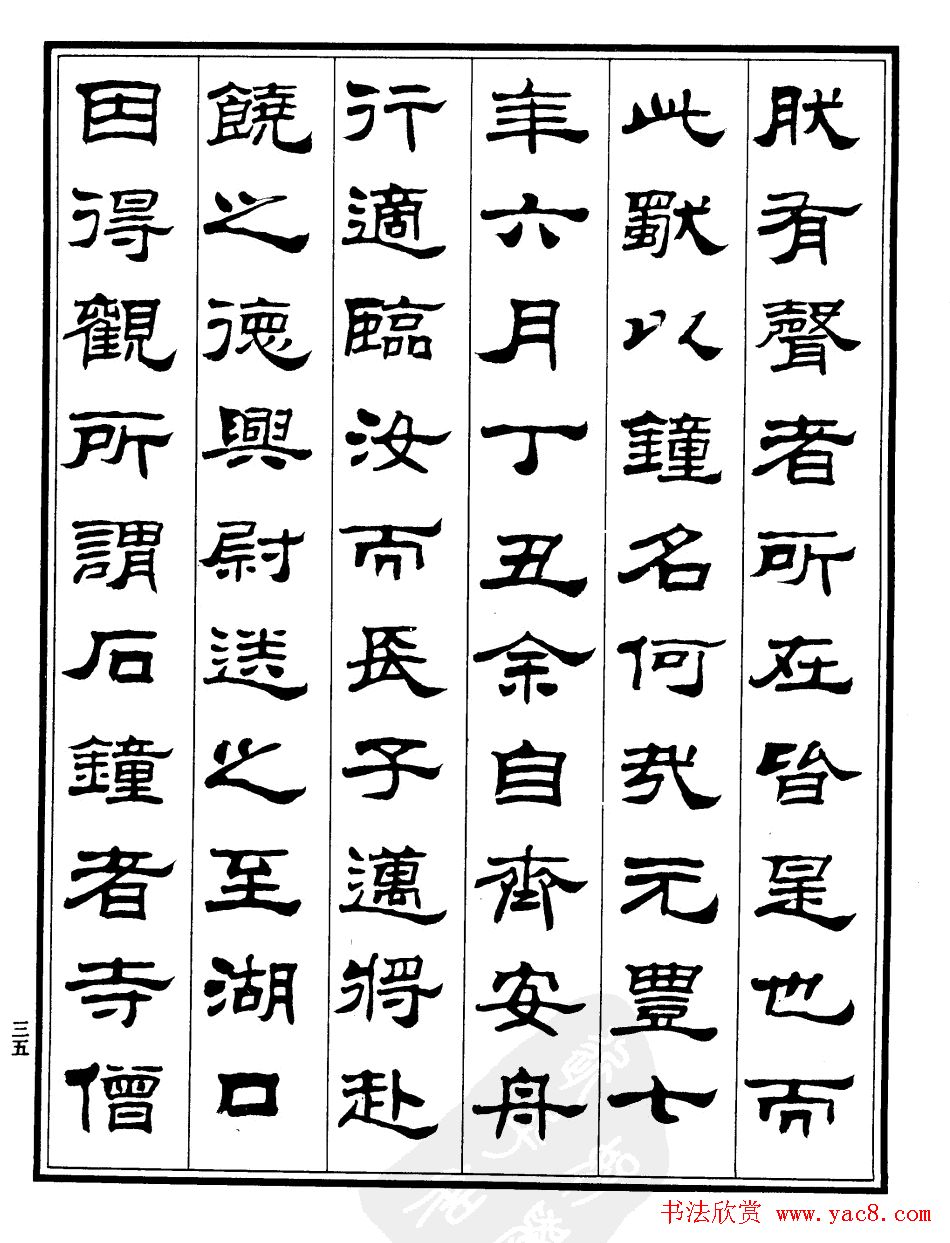 肰有聲者所在皆是也而
此獨以鐘名何哉元豐七
年六月丁丑余自齊安舟
行適臨汝而長子邁將赴
饒之德興尉送之至湖口
因得觀所謂石鐘者寺僧
三五
书法欣赏 www.yac8.com